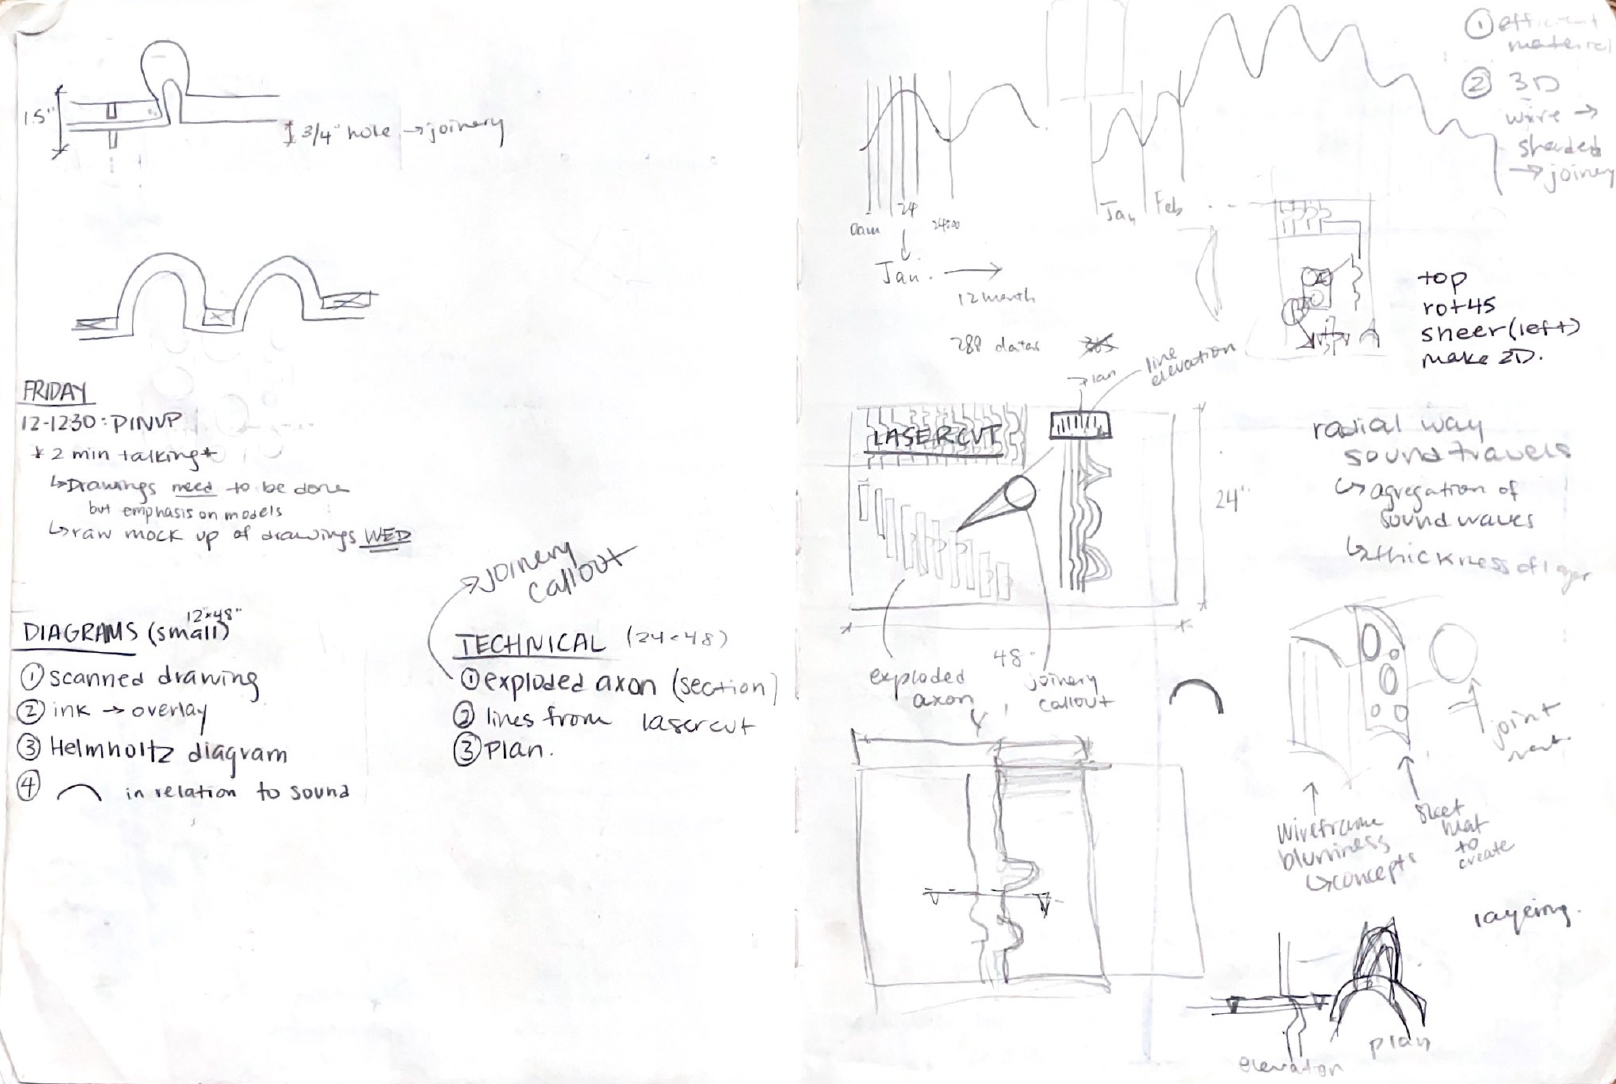 1.5"
3/4" hole → joinery
FRIDAY
12-1230: PINUP
* 2 min talking *
↳ Drawings need to be done
but emphasis on models
↳ raw mock up of drawings WED
12"×48"
DIAGRAMS (small)
① scanned drawing
② ink → overlay
③ Helmholtz diagram
④ in relation to sound
→ joinery
callout
TECHNICAL (24×48)
① exploded axon (section)
② lines from lasercut
③ plan.
① efficient
material
② 3D
wire →
shaded
→ joinery
0am
24
24:00
Jan. →
12 month
288 datas
365
Jan Feb
top
rot45
sheer(left)
make 2D.
plan
line
elevation
LASERCUT
24"
48"
exploded
axon
joinery
callout
radial way
sound travels
↳ agregation of
sound waves
↳ thickness of layer
joint
wireframe
bluriness
↳ concepts
mat
to
create
layering.
elevation
plan